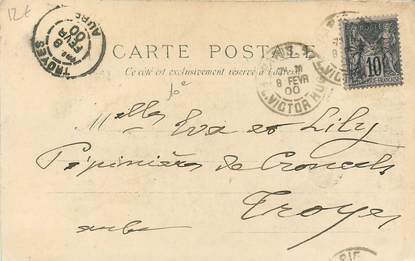 12€
CARTE POSTALE
Ce côté est exclusivement réservé à l'adresse
TROYES
AUBE
8
FEVR
00
PARIS
8 FEVR
00
VICTOR HUGO
10
Melles Eva et Lily
Pépinières de Croncels
Troyes
aube